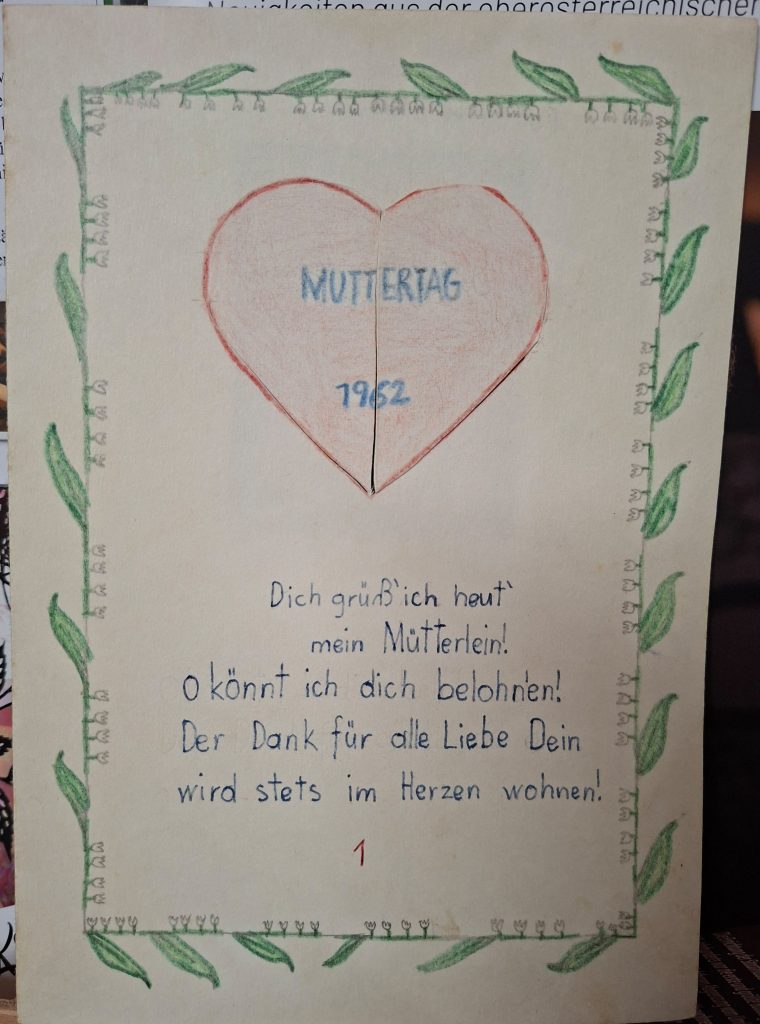 Neuigkeiten aus der oberösterreichischen
MUTTERTAG
1962
Dich grüß' ich heut'
mein Mütterlein!
O könnt ich dich belohnen!
Der Dank für alle Liebe Dein
wird stets im Herzen wohnen!
1